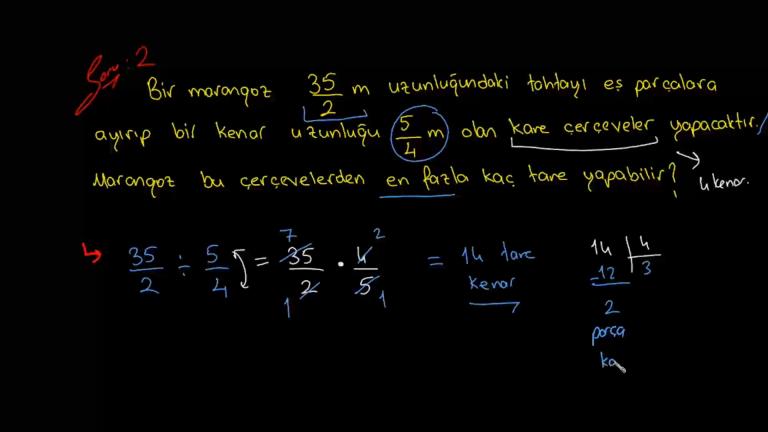 Soru: 2
Bir marangoz 35/2 m uzunluğundaki tahtayı eş parçalara
ayırıp bir kenar uzunluğu 5/4 m olan kare çerçeveler yapacaktır.
Marangoz bu çerçevelerden en fazla kaç tane yapabilir?
4 kenar.
35/2 ÷ 5/4 = 35/2 · 4/5 = 14 tane
kenar
7 2
1 1
14 | 4
-12 3
2
parça
ka